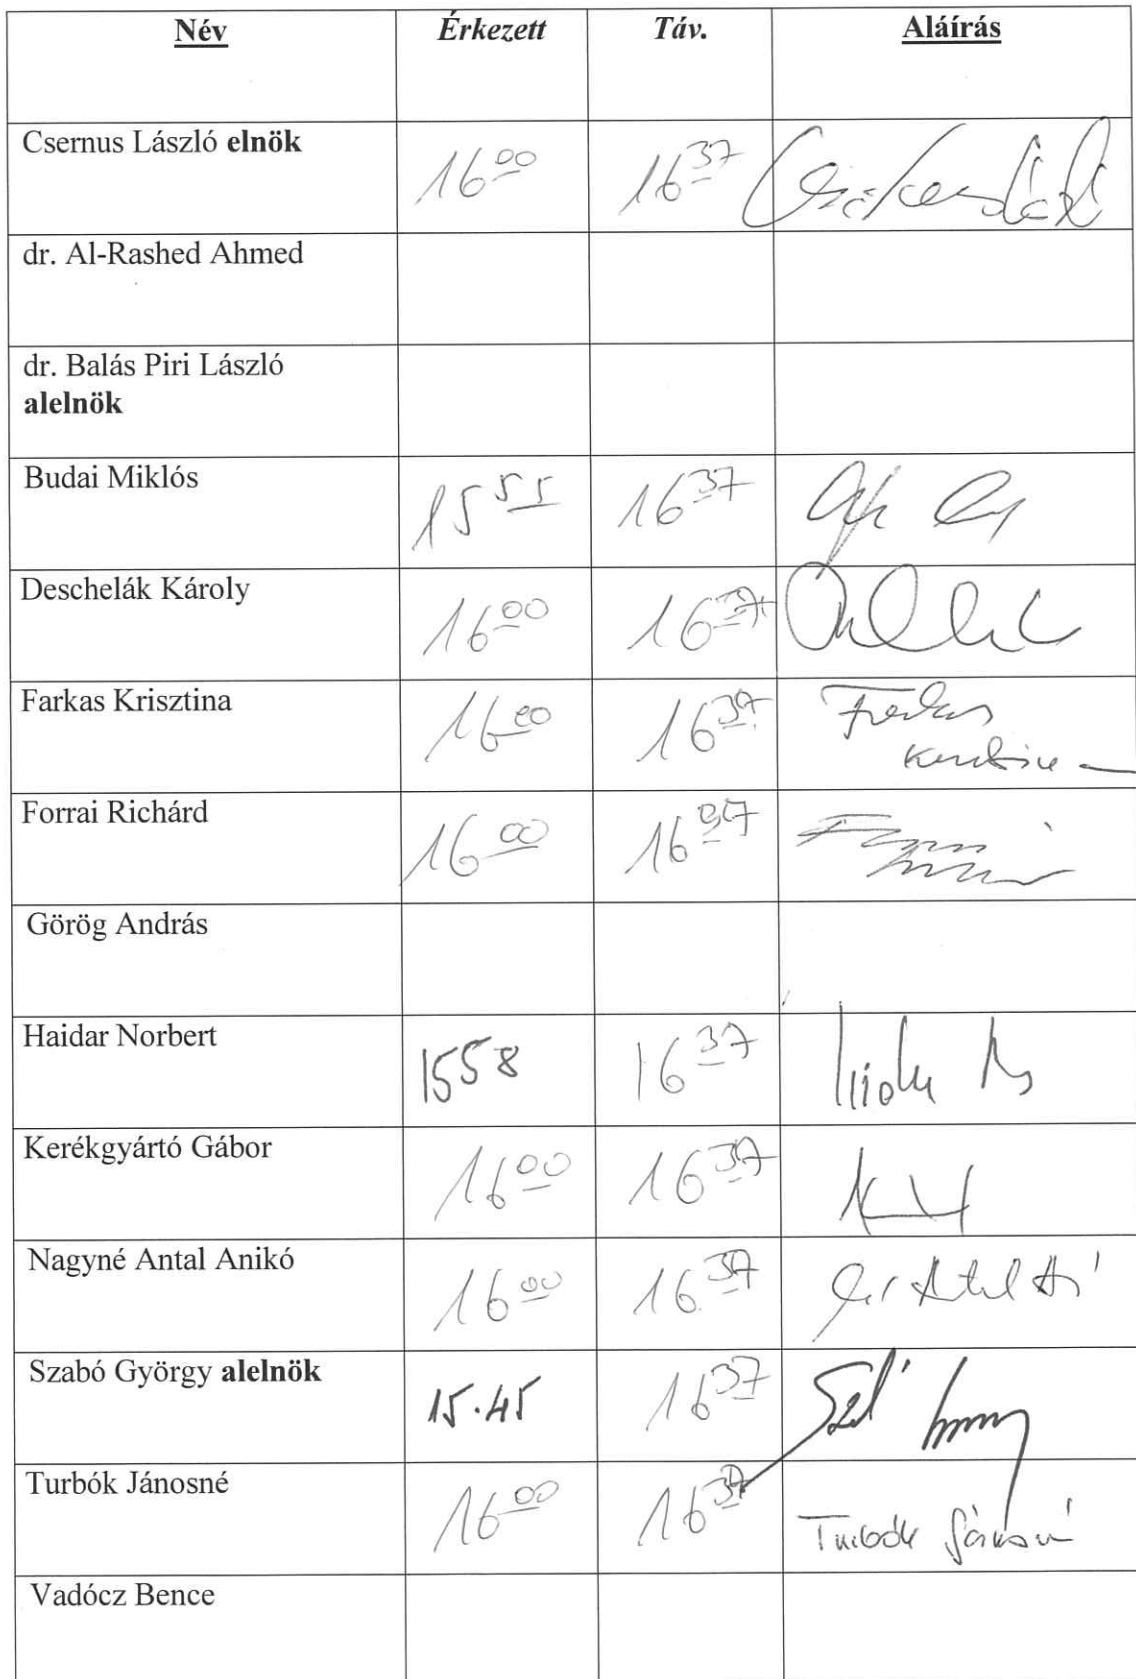 Név Érkezett Táv. Aláírás
Csernus László elnök 16 00 16 37
dr. Al-Rashed Ahmed
dr. Balás Piri László
alelnök
Budai Miklós 15 55 16 37
Deschelák Károly 16 00 16 37
Farkas Krisztina 16 00 16 37 Farkas
Forrai Richárd 16 00 16 37
Görög András
Haidar Norbert 15 58 16 37
Kerékgyártó Gábor 16 00 16 37
Nagyné Antal Anikó 16 00 16 37
Szabó György alelnök 15.45 16 37
Turbók Jánosné 16 00 16 37 Turbók Jánosné
Vadócz Bence